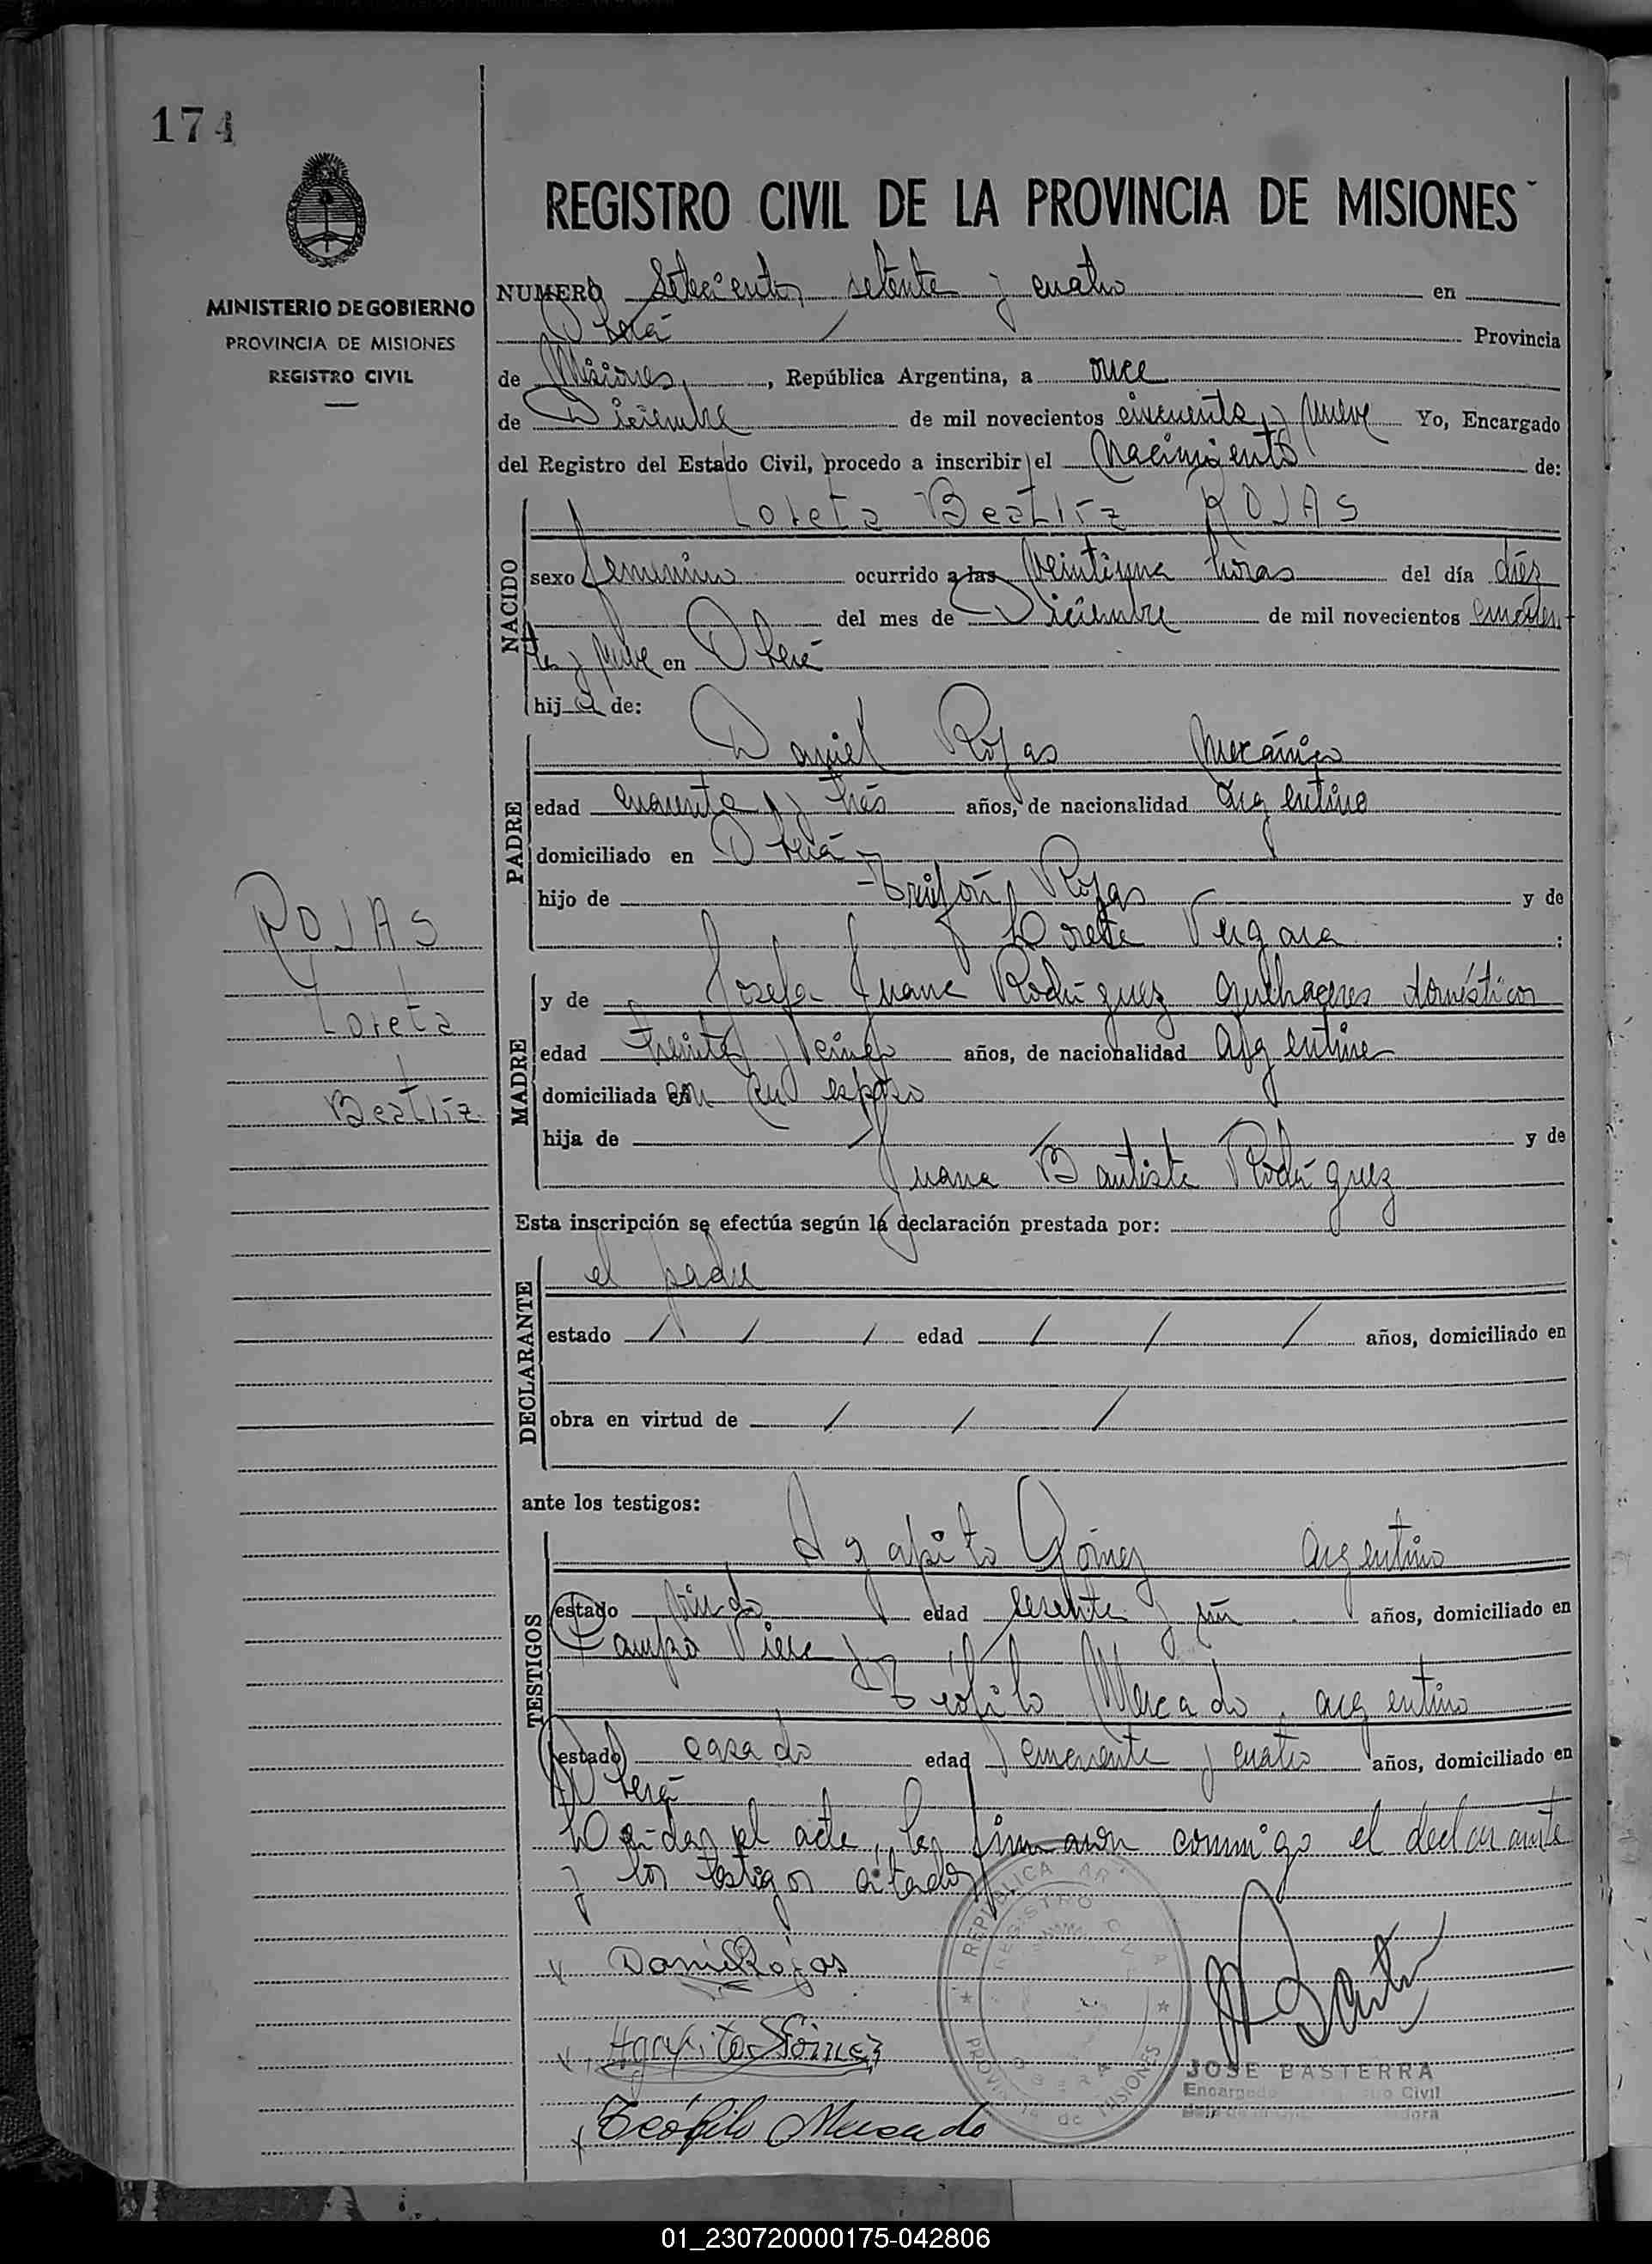 174
REGISTRO CIVIL DE LA PROVINCIA DE MISIONES
MINISTERIO DE GOBIERNO
PROVINCIA DE MISIONES
REGISTRO CIVIL
NUMERO Setecientos setenta y cuatro en
Oberá Provincia
de Misiones, República Argentina, a once
de Diciembre de mil novecientos cincuenta y nueve Yo, Encargado
del Registro del Estado Civil, procedo a inscribir el Nacimiento de:
NACIDO
Loreta Beatriz ROJAS
sexo femenino ocurrido a las veintiuna horas del día diéz
del mes de Diciembre de mil novecientos cincuen-
ta y nueve en Oberá
hija de:
PADRE
Daniel Rojas Mecánico
edad cuarenta y trés años, de nacionalidad Argentino
domiciliado en Oberá
hijo de Trifón Rojas y de
Loreta Vergara :
ROJAS
Loreta
Beatriz
MADRE
y de Josefa Juana Rodríguez quehaceres domésticos
edad treinta y cinco años, de nacionalidad Argentina
domiciliada en su esposo
hija de y de
Juana Bautista Rodríguez
Esta inscripción se efectúa según la declaración prestada por:
DECLARANTE
el padre
estado / / / edad / / / años, domiciliado en
obra en virtud de / / /
ante los testigos:
TESTIGOS
Agapito Gómez Argentino
estado viudo edad sesenta y un años, domiciliado en
Campo Viera y
Teófilo Mercado, argentino
estado casado edad cuarenta y cuatro años, domiciliado en
Oberá
Leida el acta, la firmaron conmigo el declarante
y los testigos citados
x Daniel Rojas
x Agapito Gómez
x Teófilo Mercado
REPUBLICA AR
REGISTRO CIVIL
OBERA
PROVINCIA de MISIONES
JOSE BASTERRA
Encargado Civil
01_230720000175-042806